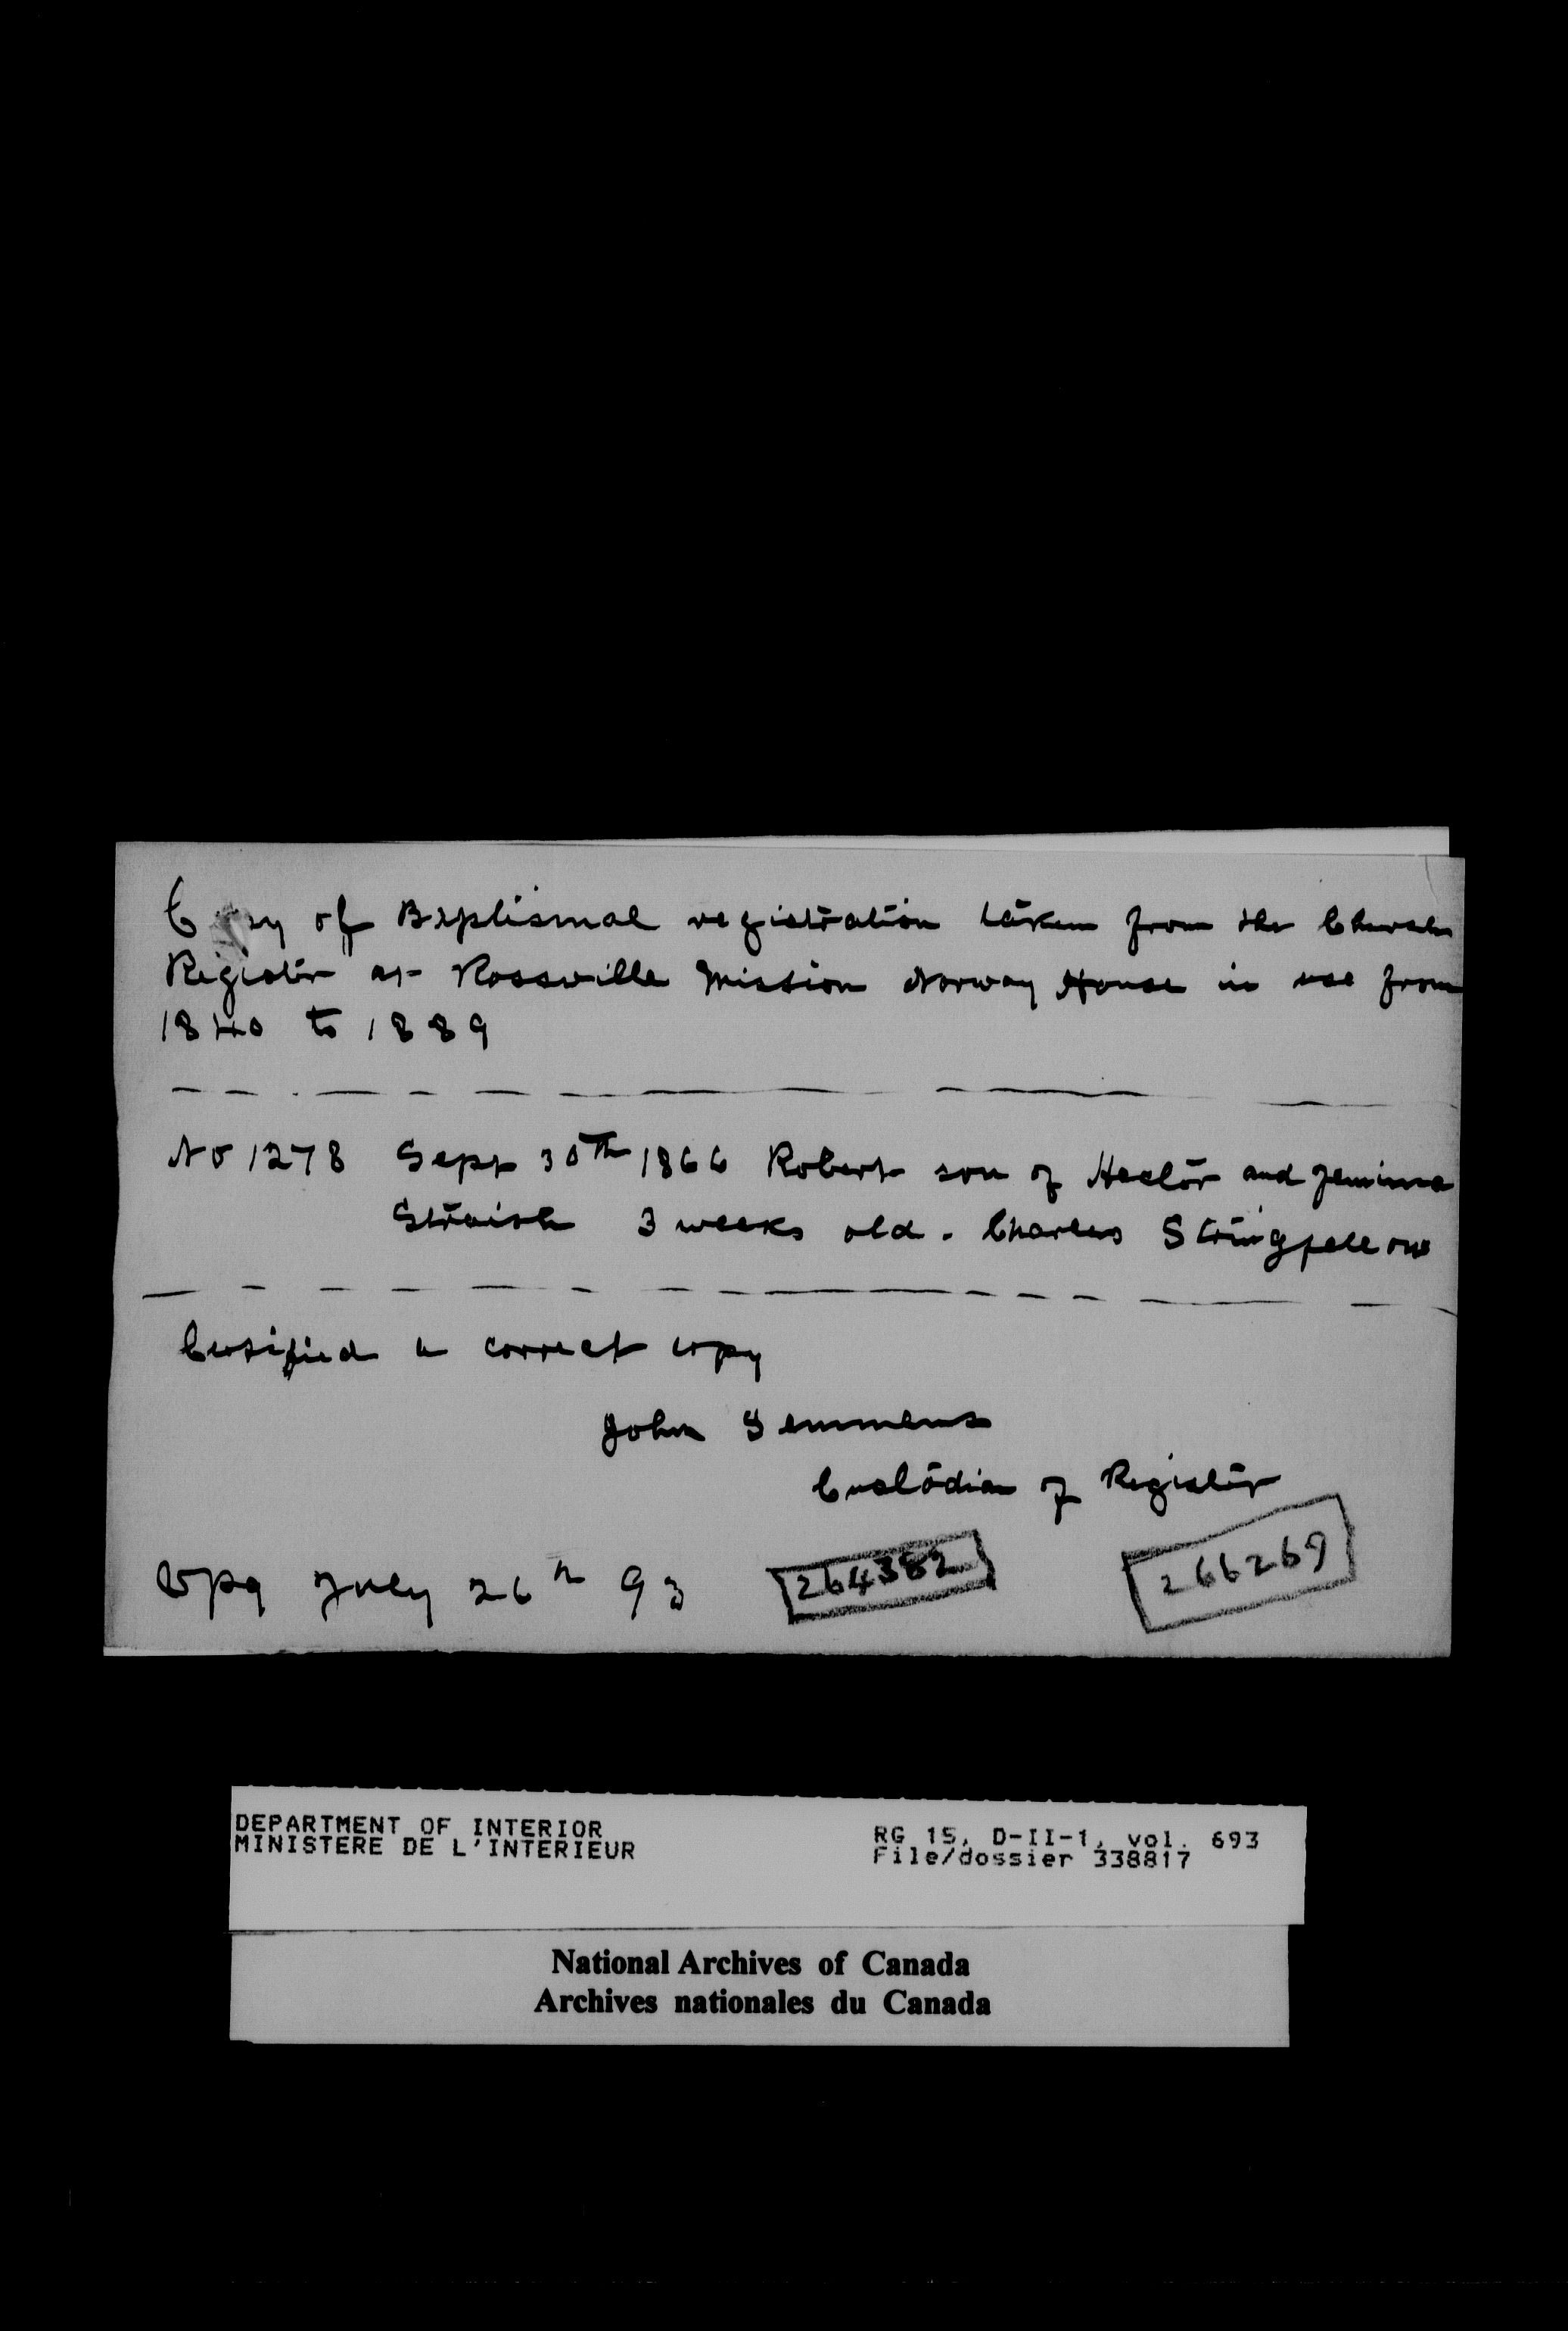 Copy of Baptismal registration taken from the Church
Register at Rossville Mission Norway House in use from
1840 to 1889
No 1278 Sept 30th 1866 Robert son of Hector and Jemima
3 weeks old. Charles Stringfellow
Certified a correct copy
John Semmens
Custodian of Register
Wpg July 26th 93
264382
266269
DEPARTMENT OF INTERIOR
MINISTERE DE L'INTERIEUR
RG 15, D-II-1, vol. 693
File/dossier 338817
National Archives of Canada
Archives nationales du Canada